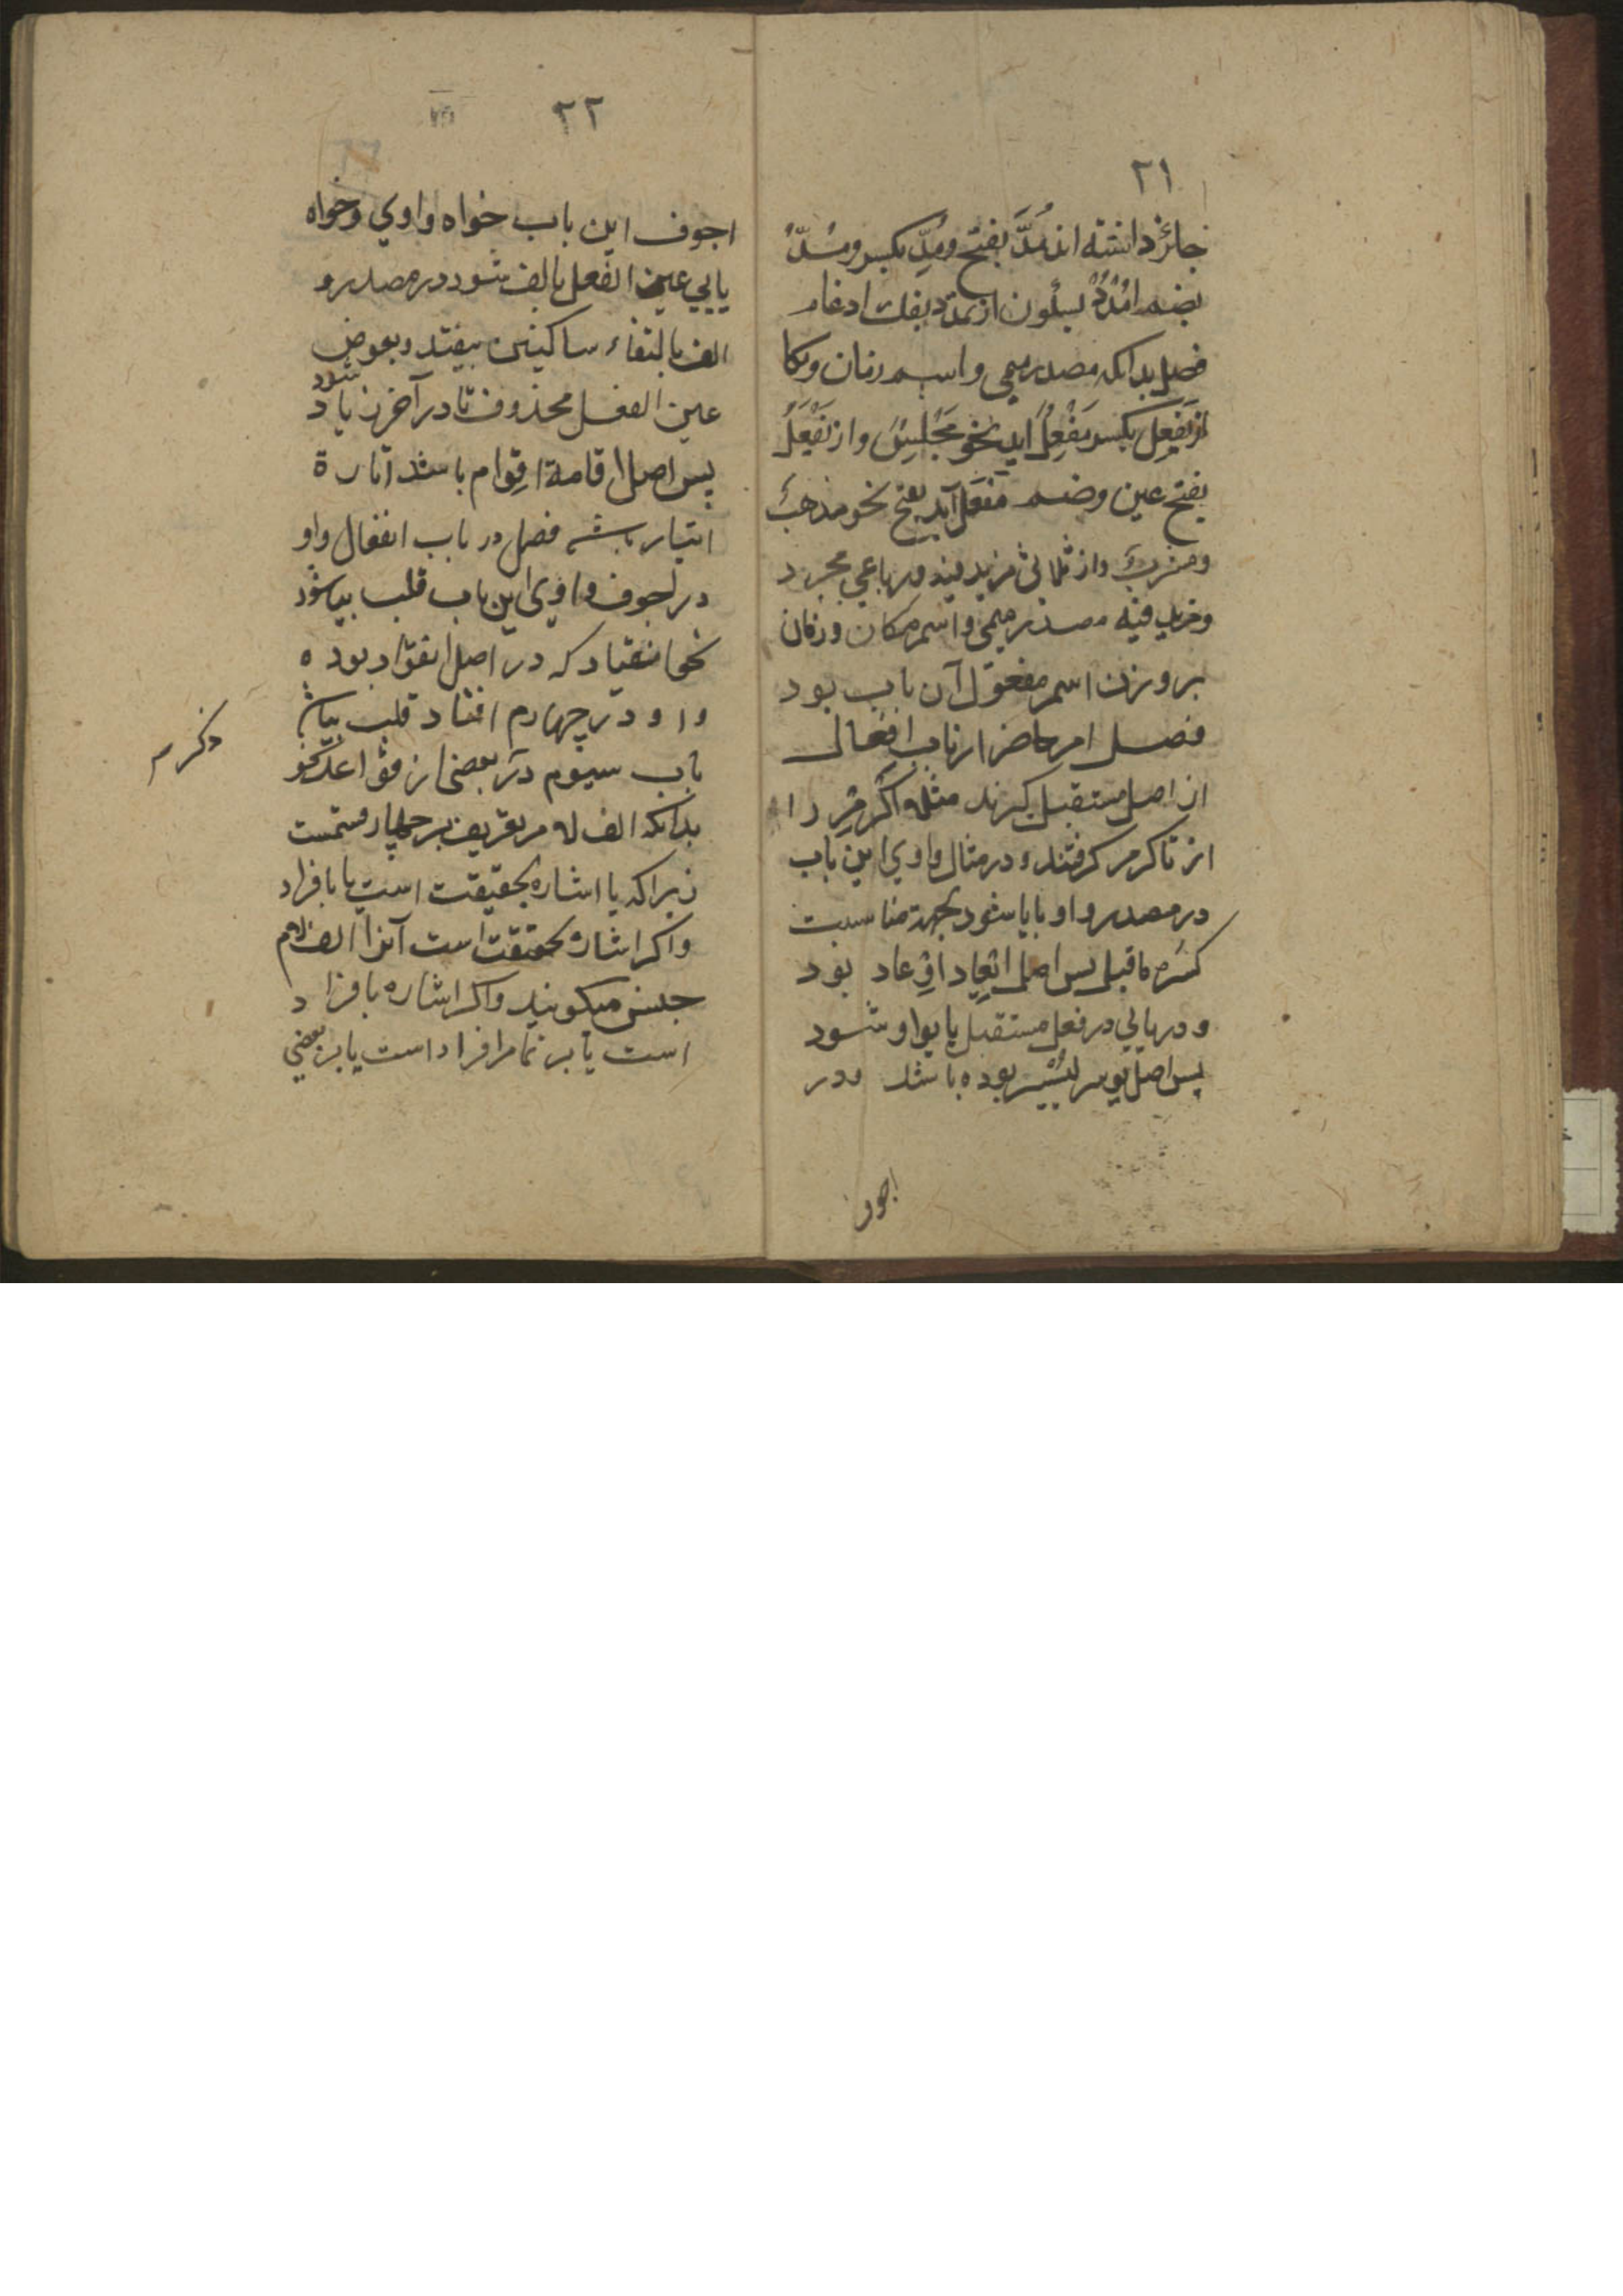 ۲۱
جائز داشته اند مُدَّ بفتح ومُدِّ بکسر ومُدُّ
بضم امْدُدْ بسکون از تمدد بفک ادغام
فصل بدانکه مصدر میمی واسم زمان ومکا
از یَفْعِل بکسر مَفْعِل آید نحو مَجْلِسْ واز یَفْعَلُ
بفتح عین وضم مَفْعَل آید بفتح نحو مذهب
ومشرب واز ثلاثی مزید فیه ورباعی مجرد
ومزید فیه مصدر میمی واسم مکان وزمان
بر وزن اسم مفعول آن باب بود
فصل امر حاضر از باب افعال
از اصل مستقبل گیرند مثلا اکْرِمْ را
از تاکرم گرفتند ودر مثال واوی این باب
در مصدر واو بایا شود بجهة مناسبت
کسره ماقبل پس اصل ایعاد اوعاد بود
ودر یایی در فعل مستقبل یا بواو شود
پس اصل یوسر یُیْسِر بوده باشد ودر
اجوف
۲۲
اجوف این باب خواه واوی وخواه
یایی عین الفعل بالف شود در مصدر و
الف بالتقاء ساکنین بیفتد وبعوض
عین الفعل محذوف تا در آخر زیاد شود
پس اصل اقامة اقوام باشد اثارة
اثیار باشد فصل در باب انفعال واو
در اجوف واوی این باب قلب بیا شود
نحو انقیاد که در اصل انقواد بوده
واو در چهارم افتاد قلب بیا شد
باب سیوم در بعضی از قواعد نحو
بدانکه الف لام تعریف بر چهار قسمست
زیراکه یا اشاره بحقیقت است یا بافراد
واکر اشاره بحقیقت است آنرا الف لام
جنس میکویند واکر اشاره بافراد
است یا بر تمام افراد است یا بر بعضی